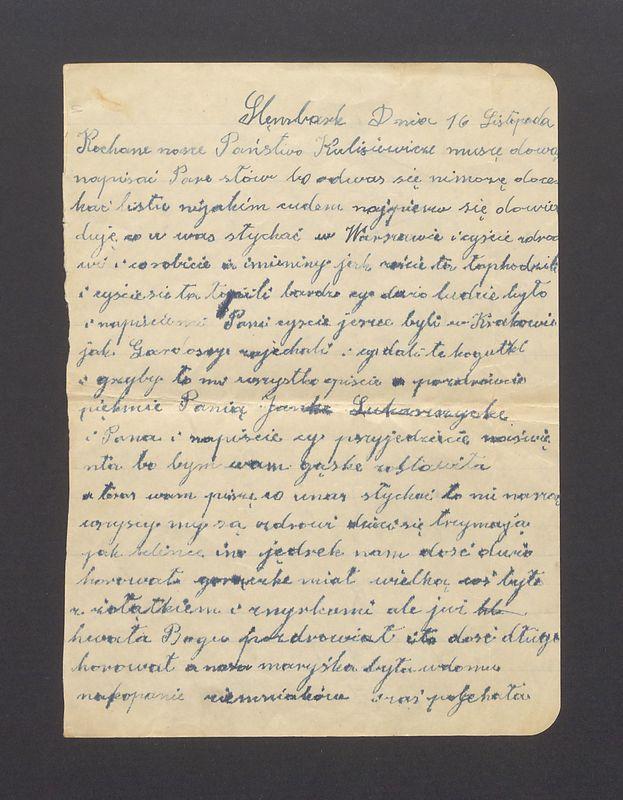 Szymbark Dnia 16 Listopada
Kochane nasze Państwo Kulisiewicze muszę dowa
napisać Pare słów bo odwas się nimorzę docze
kać listu nijakim cudem najpierw się dowia
duję co u was słychać w Warszawie i cyście zdro
wi i corobicie a imieniny jak żeście ta
i cyście sie ta bardzo cy dużo ludzie było
i napiście mi Pani cyście jesce byli w Krakowie
jak zajechali i cy dali te kogutki
i grzyby to mi wszystko opiście a pozdrówcie
pięknie Panią
i Pana i napiście cy przyjedziecie naświę
nta bo bym wam gąskę zostawiła
a teras wam piszę co unas słychać to ni narazi
wszyscy my są zdrowi dzieci się trzymają
jak ino jędrek nam dość dużo
horował gorączkę miał wielką coś było
z rzołątkiem i zmyskami ale już
hwała Bogu pozdrowiał dość długo
horował a nasa maryśka była wdomu
nakopanie ziemniaków zaś pojehała